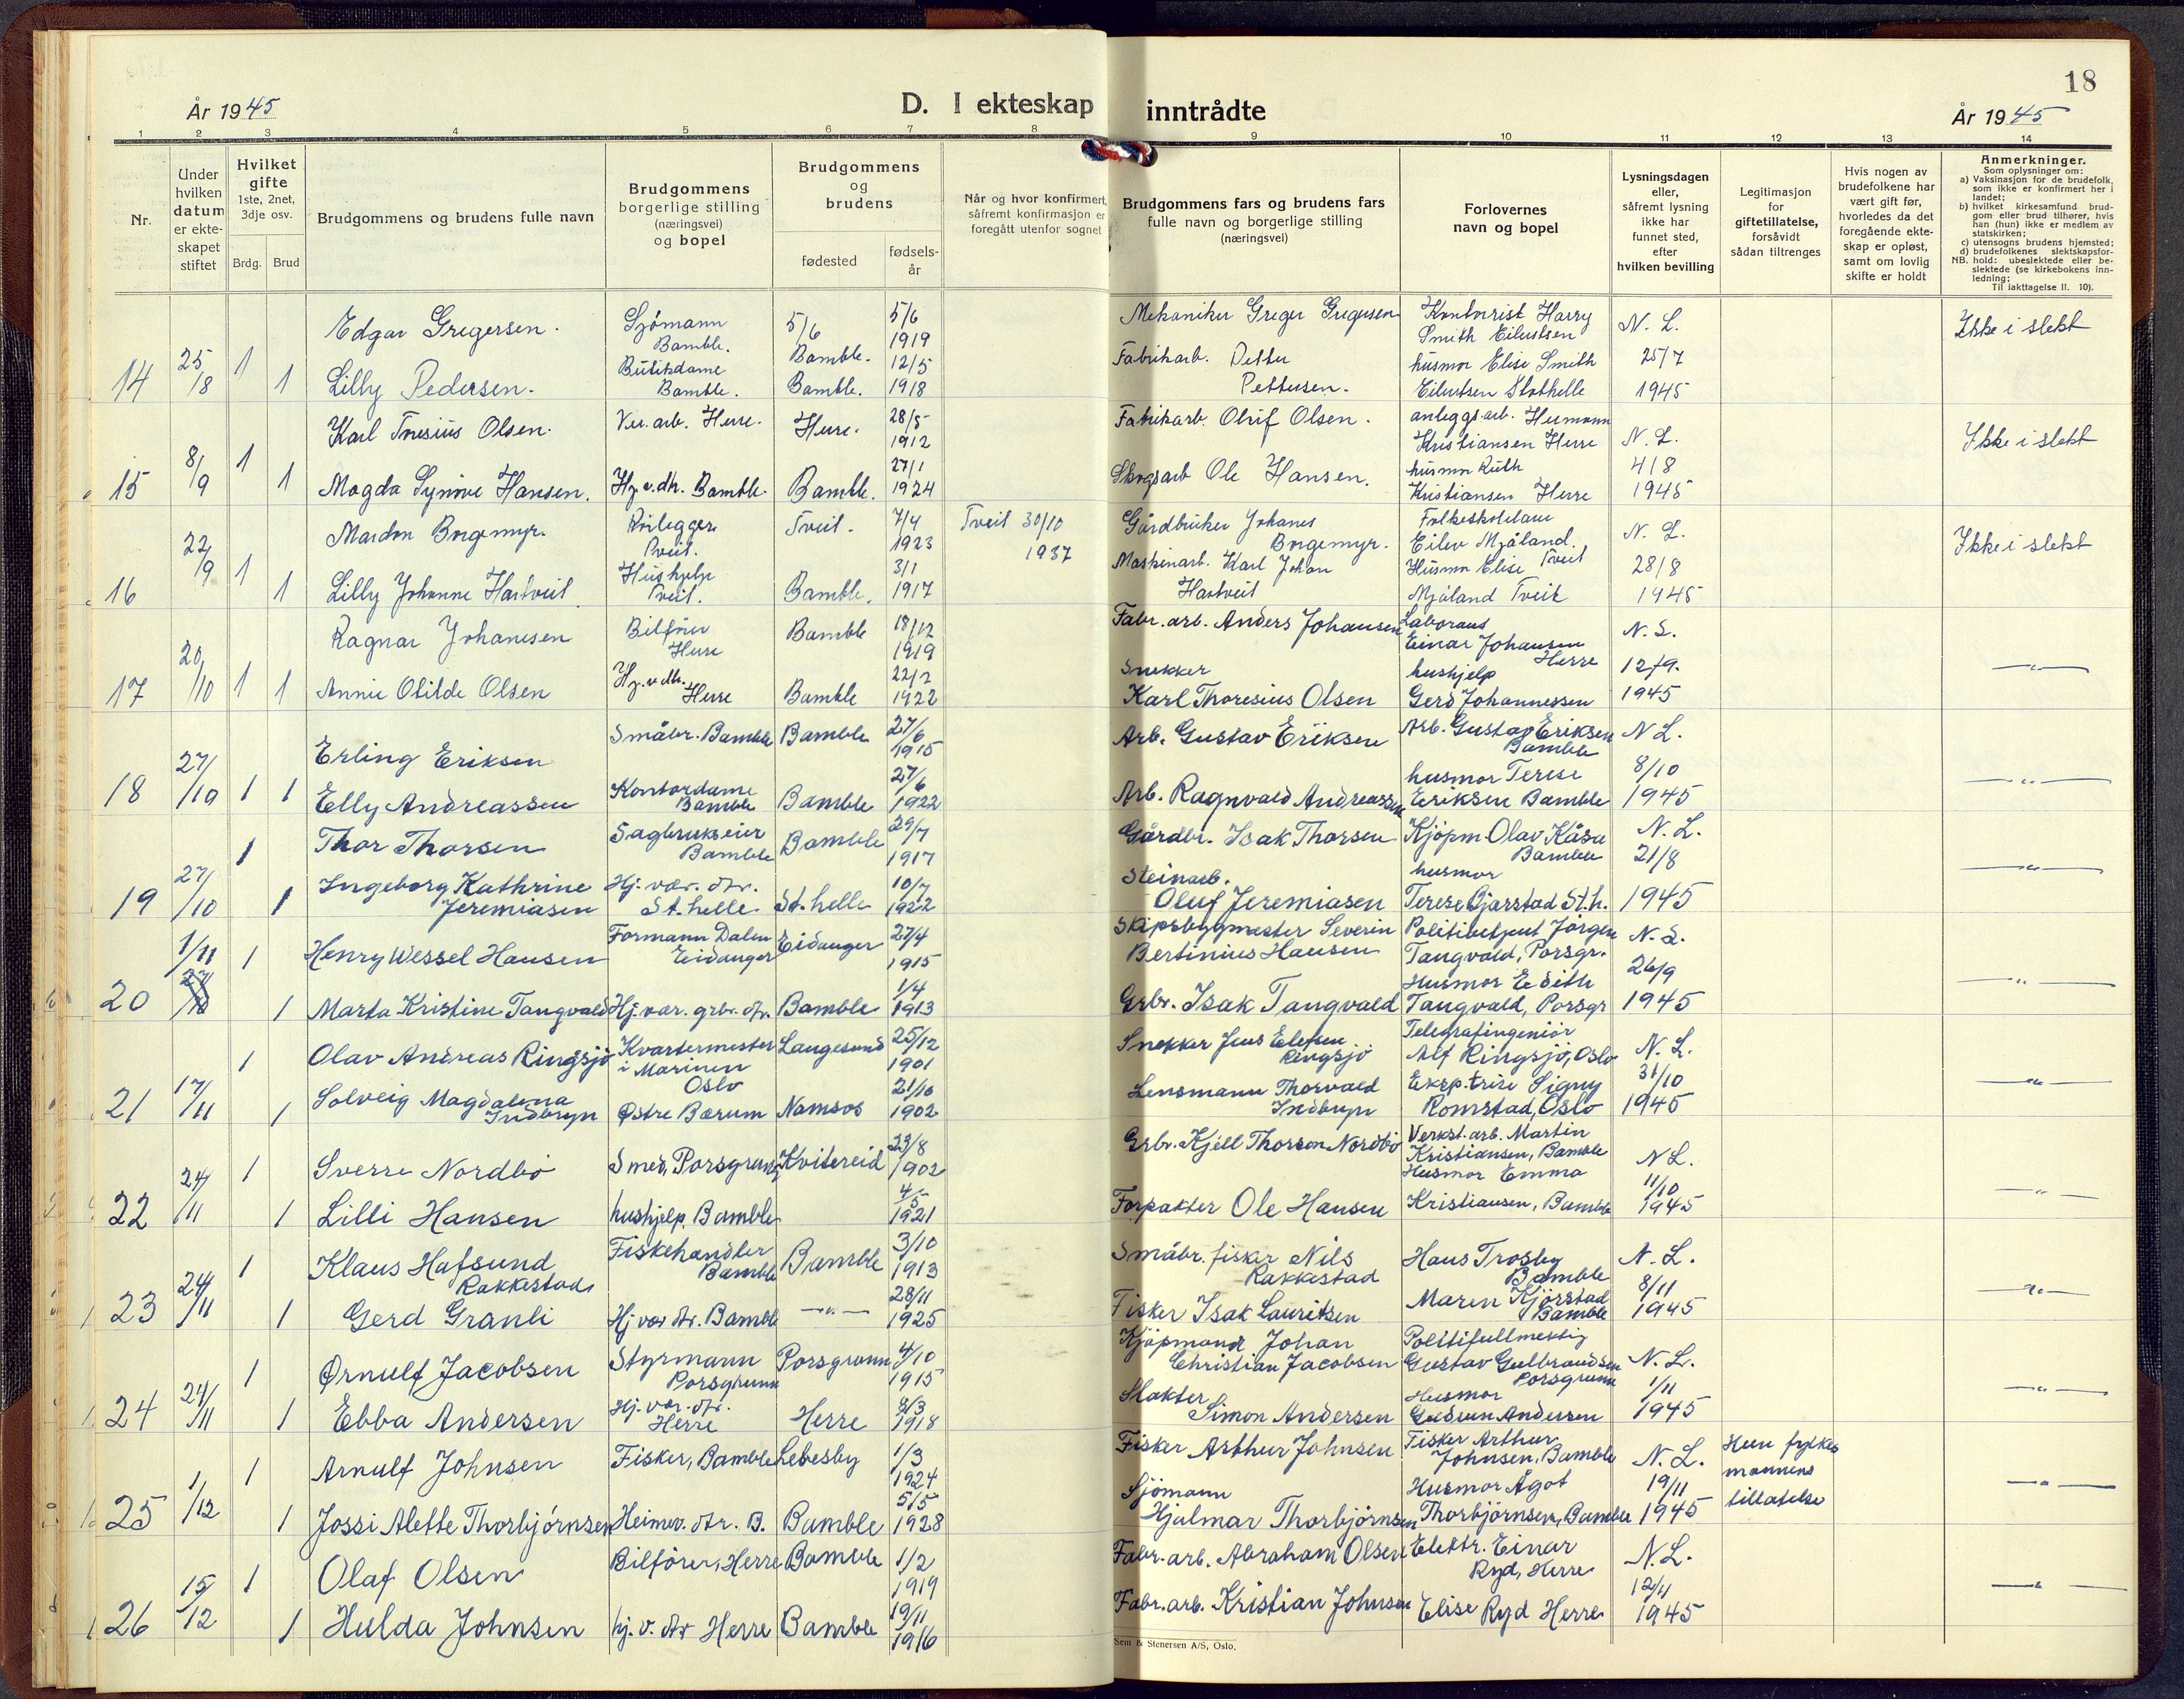 18
År 1945
D. I ekteskap inntrådte
År 1945
1 2 3 4 5 6 7 8 9 10 11 12 13 14
Nr.
Under hvilken datum er ekteskapet stiftet
Hvilket gifte 1ste, 2net, 3dje osv.
Brdg. Brud
Brudgommens og brudens fulle navn
Brudgommens borgerlige stilling (næringsvei) og bopel
Brudgommens og brudens
fødested
fødselsår
Når og hvor konfirmert, såfremt konfirmasjon er foregått utenfor sognet
Brudgommens fars og brudens fars fulle navn og borgerlige stilling (næringsvei)
Forlovernes navn og bopel
Lysningsdagen eller, såfremt lysning ikke har funnet sted, efter hvilken bevilling
Legitimasjon for giftetillatelse, forsåvidt sådan tiltrenges
Hvis nogen av brudefolkene har vært gift før, hvorledes da det foregående ekteskap er opløst, samt om lovlig skifte er holdt
Anmerkninger.
Som oplysninger om:
a) Vaksinasjon for de brudefolk, som ikke er konfirmert her i landet;
b) hvilket kirkesamfund brudgom eller brud tilhører, hvis han (hun) ikke er medlem av statskirken;
c) utensogns brudens hjemsted;
d) brudefolkenes slektskapsforhold: ubeslektede eller beslektede (se kirkebokens innledning;
NB.
Til iakttagelse II. 10).
14 25/8 1 Edgar Gregersen. Sjømann Bamble. 5/6 Bamble. 5/6 1919 Mekaniker Greger Gregersen Kontorist Harry Smith Eilertsen N. L. Ikke i slekt
1 Lilly Pedersen. Butikdame Bamble. Bamble. 12/5 1918 Fabrikarb. Petter Pettersen. husmor Elise Smith Eilertsen Stathelle 25/7 1945
15 8/9 1 Karl Tresius Olsen. Ver. arb. Herre. Herre. 28/5 1912 Fabrikarb. Oluf Olsen. anleggsarb. Hermann Kristiansen Herre N. L. Ikke i slekt
1 Magda Synnøve Hansen. Hj.v.dtr. Bamble. Bamble. 27/1 1924 Skogsarb Ole Hansen. husmor Ruth Kristiansen Herre 4/8 1945
16 22/9 1 Mardon Borgemyr. Rørlegger Tveit. Tveit. 7/4 1923 Tveit 30/10 1937 Gårdbruker Johanes Borgemyr. Folkeskolelærer Eilev Mjåland. Tveit N. L. Ikke i slekt
1 Lilly Johanne Hartveit. Hushjelp Tveit. Bamble. 3/1 1917 Maskinarb. Karl Johan Hartveit Husmor Elise Mjåland Tveit 28/8 1945
17 20/10 1 Ragnar Johansen Bilfører Herre Bamble 18/12 1919 Fabr. arb. Anders Johansen Laborant Einar Johansen Herre N. L. —"—
1 Annie Otilde Olsen Hj.v.dtr. Herre Bamble 22/2 1922 Snekker Karl Thoresius Olsen hushjelp Gerd Johannessen 12/9. 1945
18 27/10 1 Erling Eriksen Småbr. Bamble Bamble 27/6 1915 Arb. Gustav Eriksen Arb. Gustav Eriksen Bamble N L. —"—
1 Elly Andreassen Kontordame Bamble Bamble 27/6 1922 Arb. Ragnvald Andreassen husmor Terese Eriksen Bamble 8/10 1945
19 27/10 1 Thor Thorsen Sagbrukseier Bamble Bamble 29/7 1917 Gårdbr. Isak Thorsen Kjöpm. Olav Kåsa Bamble N. L. 21/8 —"—
1 Ingeborg Kathrine Jeremiasen Hj. vær. dtr. St.helle. St.helle 10/7 1922 Steinarb. Oluf Jeremiasen husmor Terese Gjærstad St.h. 1945
20 1/11 1 Henry Wessel Hansen Formann Dalen Eidanger Eidanger 27/4 1915 Skipsbygmester Severin Bertinius Hansen Politibetjent Jörgen Tangvald, Porsgr. N. L. —"—
1 Marta Kristine Tangvald Hj. vær. grbr. dtr. Bamble 1/4 1913 Grbr. Isak Tangvald Husmor Edith Tangvald, Porsgr 26/9 1945
21 17/11 1 Olav Andreas Ringsjø Kvartermester i Marinen Oslo Langesund 25/12 1901 Snekker Jens Ringsjø Telegrafingeniør Alf Ringsjø, Oslo N. L. —"—
1 Solveig Magdalena Indbryn Østre Bærum Namsos 21/10 1902 Lensmann Thorvald Indbryn Eksp.trise Signy Romstad, Oslo 31/10 1945
22 24/11 1 Sverre Nordbø Smed, Porsgrunn Kvitereid 23/8 1902 Grbr. Kjell Thorson Nordbø Verkst. arb. Martin Kristiansen, Bamble N L. —"—
1 Lilli Hansen hushjelp, Bamble 4/5 1921 Forpakter Ole Hansen Husmor Emma Kristiansen, Bamble 11/10 1945
23 24/11 1 Klaus Hafsund Rakkestad Fiskehandler Bamble Bamble 3/10 1913 Småbr. fisker Nils Rakkestad Hans Trosby Bamble N. L. —"—
1 Gerd Granli Hj. vær dtr. Bamble —"— 28/11 1925 Fisker Isak Lauritsen Maren Kjörstad Bamble 8/11 1945
24 24/11 1 Ørnulf Jacobsen Styrmann Porsgrunn Porsgrunn 4/10 1915 Kjøpmann Johan Christian Jacobsen Politifullmektig Gustav Gulbrandsen Porsgrunn N. L. —"—
1 Ebba Andersen Hj. vær. dtr. Herre Herre 8/3 1918 Slakter Simon Andersen Husmor Gudrun Andersen 1/11 1945
25 1/12 1 Arnulf Johnsen Fisker, Bamble Lebesby 1/3 1924 Fisker Arthur Johnsen Fisker Arthur Johnsen, Bamble N. L. Hun fylkesmannens tillatelse —"—
1 Jossi Alette Thorbjørnsen Heimev. dtr. B. Bamble 5/5 1928 Sjömann Hjalmar Thorbjørnsen Husmor Ågot Thorbjørnsen, Bamble 19/11 1945
26 15/12 1 Olaf Olsen Bilfører, Herre Bamble 1/2 1919 Fabr. arb. Abraham Olsen Elektr. Einar Ryd, Herre N. L. —"—
1 Hulda Johnsen hj. v. dtr Herre Bamble 19/11 1916 Fabr. arb. Kristian Johnsen Elise Ryd Herre 12/11 1945
Sem & Stenersen A/S, Oslo.